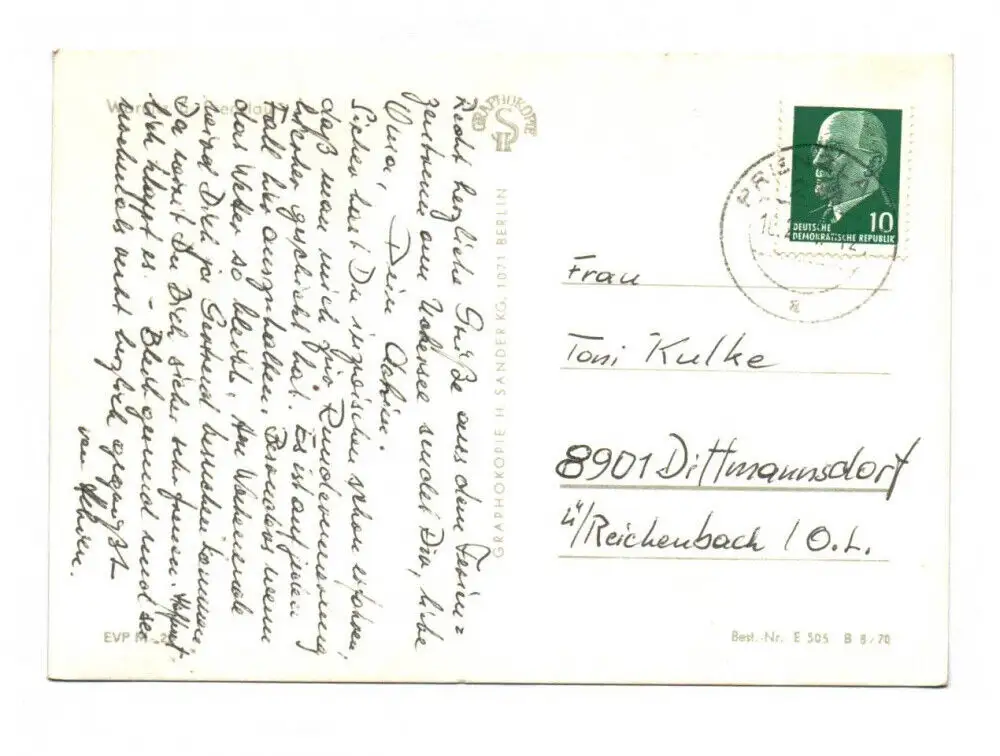 Recht herzliche Grüße aus dem Ferien=
zentrum am Uckersee sendet Dir, liebe
Oma, Dein Achim.
Sicher hast Du inzwischen schon erfahren,
daß man mich für Rundumernährung
hierher geschickt hat. Es ist auf jeden
Fall hier auszuhalten. Besonders wenn
das Wetter so bleibt. Am Wochenende
wird Dich ja Gertraud besuchen kommen,
Da wirst Du Dich sicher sehr freuen. Hoffent-
lich klappt es. – Bleib gesund und sei
nochmals recht herzlich gegrüßt
von Achim.
EVP M -,2
GRAPHOKOPIE
GRAPHOKOPIE H. SANDER KG, 1071 BERLIN
10
DEUTSCHE
DEMOKRATISCHE REPUBLIK
Frau
Toni Kulke
8901 Dittmannsdorf
ü/Reichenbach / O.L.
Best.-Nr. E 505 B 8/70